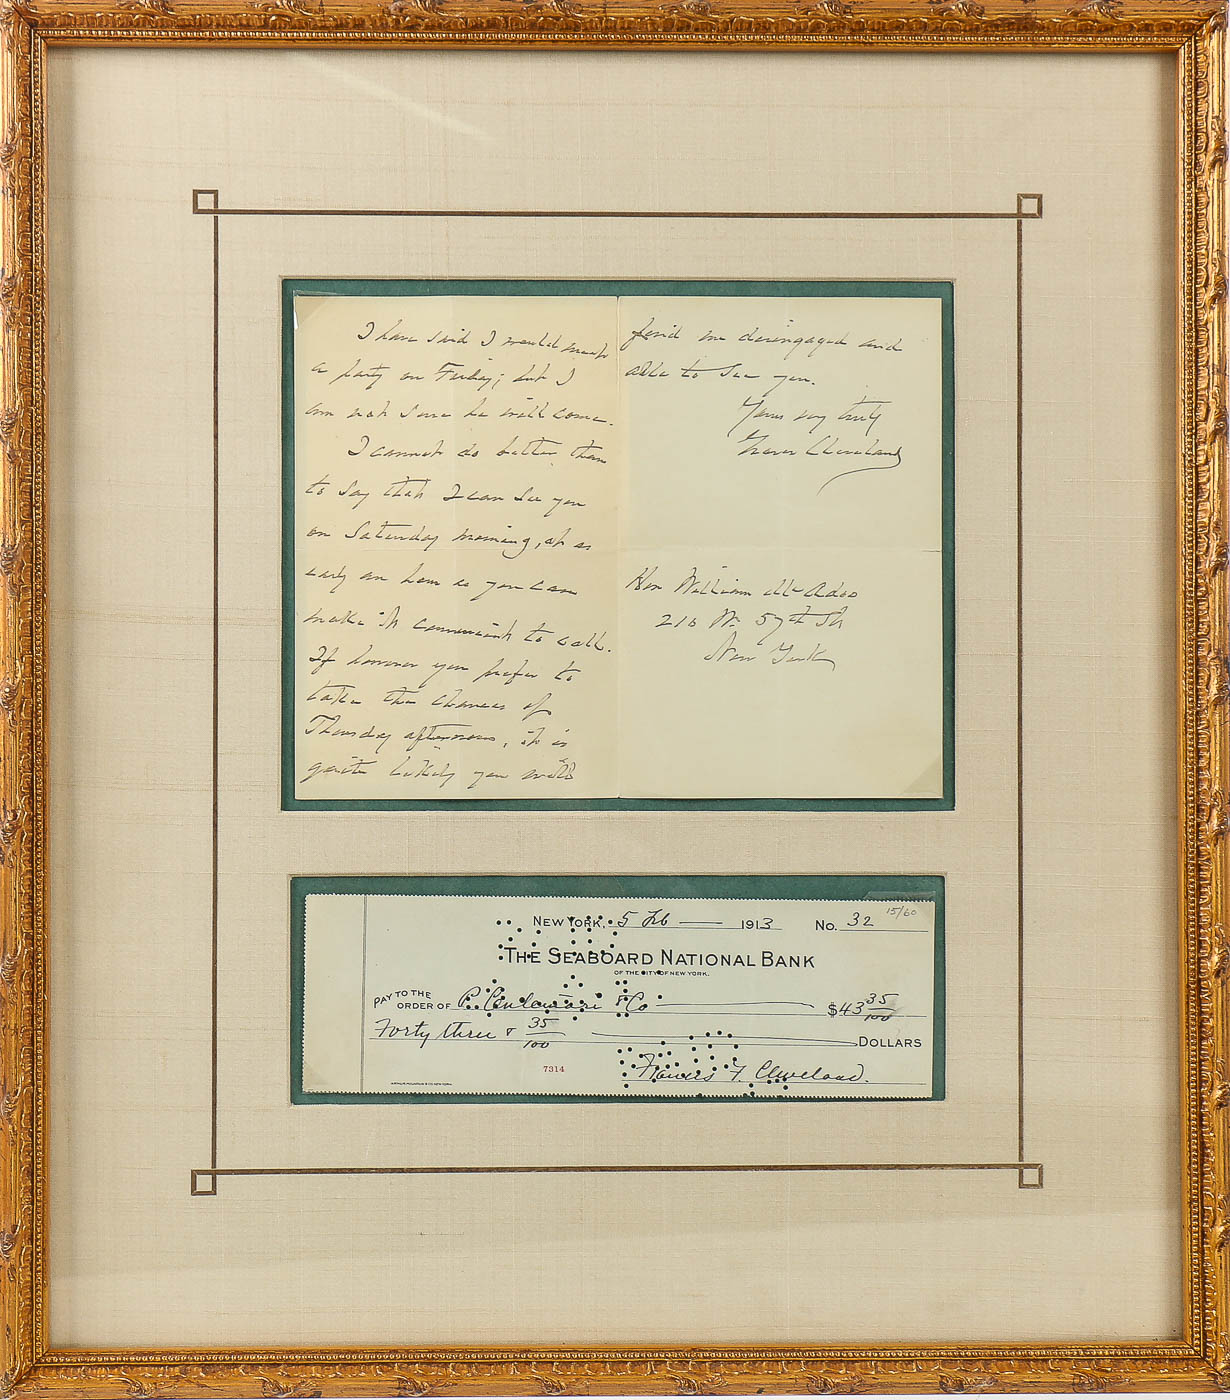 I have said I would meet
a party on Friday; but I
am not sure he will come.
I cannot do better than
to say that I can see you
on Saturday morning, at as
early an hour as you can
make it convenient to call.
If however you prefer to
take the chances of
Thursday afternoon, it is
quite likely you will
find me disengaged and
able to see you.
Yours very truly
Grover Cleveland
Hon William McAdoo
210 W. 57th St
New York
15/60
NEW YORK, 5 Feb 1913 No. 32
THE SEABOARD NATIONAL BANK
OF THE CITY OF NEW YORK.
PAY TO THE
ORDER OF P. & Co $43 35/100
Forty three & 35/100 DOLLARS
7314
Frances F. Cleveland.